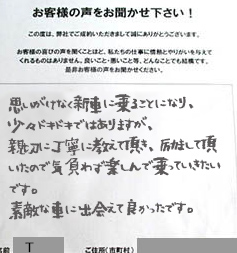 お客様の声をお聞かせ下さい!
この度は、弊社でご成約いただきまして誠にありがとうございます。
お客様の喜びの声を聞くことほど、私たちの仕事に情熱とやりがいを与えて
くれるものはありません。良いこと・悪いこと等、どんなことでも結構です。
是非お客様の声をお聞かせください。
思いがけなく新車に乗ることになり、
少々ドキドキではありますが、
親切に丁寧に教えて頂き、励まして頂
いたので気負わず楽しんで乗っていきたい
です。
素敵な車に出会えて良かったです。
名前 T ご住所(市町村)